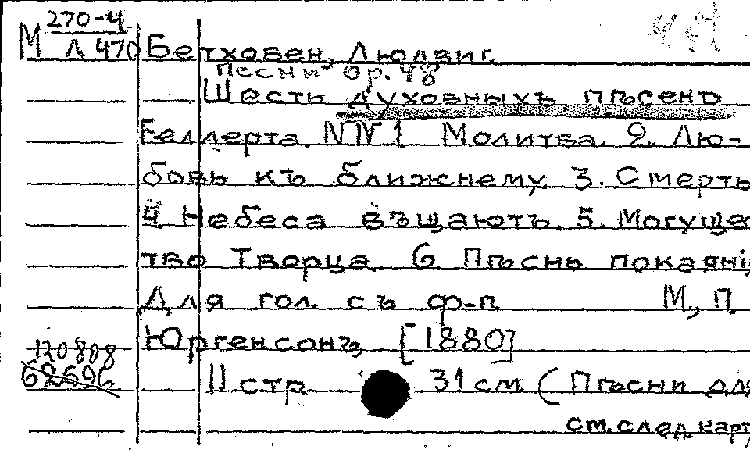 270-4
М Л 470 Бетховен, Людвиг.
Песни ор. 48
Шесть духовныхъ пѣсенъ
Геллерта. №№ 1 Молитва. 2. Лю-
бовь къ ближнему 3. Смерть
4. Небеса вѣщаютъ. 5. Могуще
тво Творца. 6. Пѣснь покаяні
Для гол. съ ф-п М., П.
Юргенсонъ, [1880]
120808
62696 11 стр. 31 см (Пѣсни дл
см. след. карт